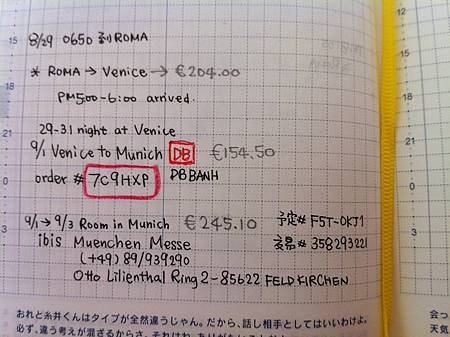 15
8/29 0650 到ROMA
* ROMA → Venice → €204.00
18
PM5:00-6:00 arrived
21
29-31 night at Venice
9/1 Venice to Munich DB €154.50
0
order # 7C9HXP DB BAHN
9/1 → 9/3 Room in Munich €245.10 予定# F5T-OKJ1
3
ibis Muenchen Messe 交易# 358293221
(+49) 89/939290
Otto Lilienthal Ring 2-85622 FELDKIRCHEN
おれと糸井くんはタイプが全然違うじゃん。だから、話し相手としてはいいわけよ。
必ず、違う考えが混ざるからさ。それはね、
12
15
18
21
0
3
会っ
天気